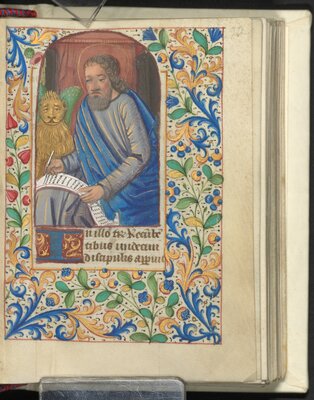 In illo tp̄r. Recūbē
tibus undecim
discipulis appui